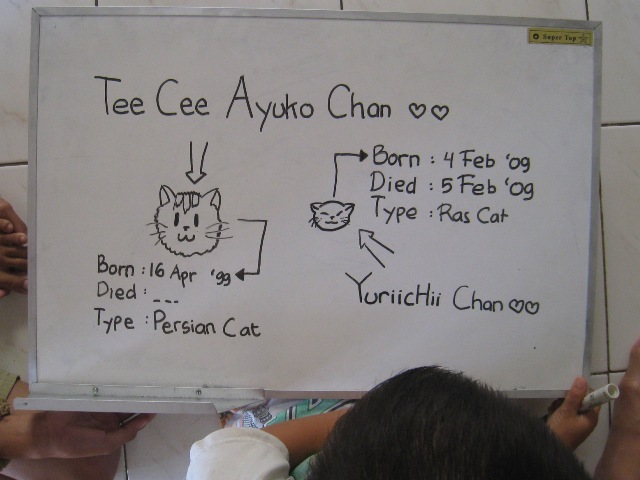 Super Top
Tee Cee Ayuko Chan ♡♡
Born : 16 Apr '99
Died : _ _ _
Type : Persian Cat
Born : 4 Feb '09
Died : 5 Feb '09
Type : Ras Cat
YuriicHii Chan ♡♡